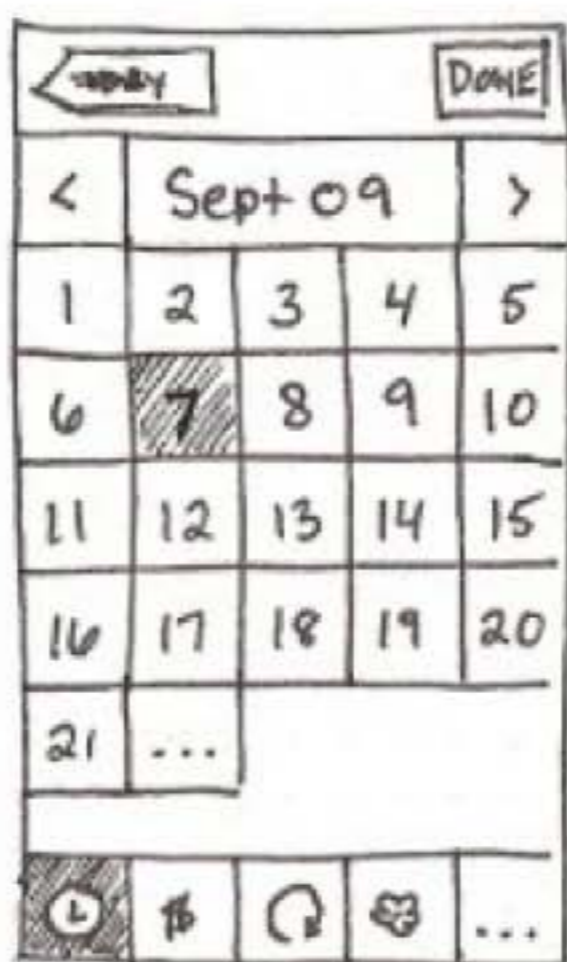 DONE
< Sept 09 >
1 2 3 4 5
6 7 8 9 10
11 12 13 14 15
16 17 18 19 20
21 ...
...